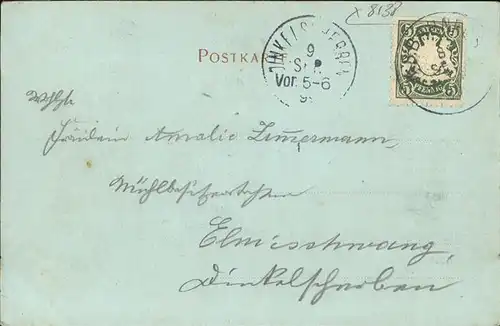 x 8138
POSTKA
9
S
Vor. 5-6
9
5 5
PFENNIG
Wohlg.
Fräulein Amalie Zimmermann,
Mühlbesitzerstochter
Elmischwang,
Dinkelscherben